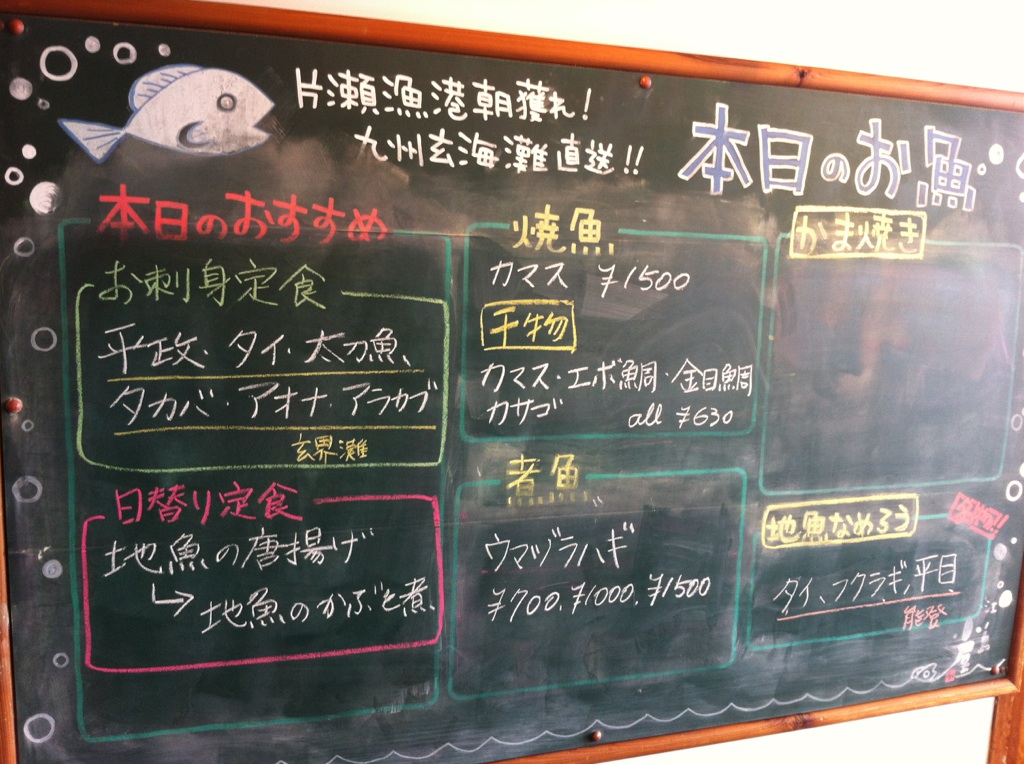 片瀬漁港朝獲れ!
九州玄海灘直送!!
本日のお魚
本日のおすすめ
お刺身定食
平政・タイ・太刀魚、
タカバ・アオナ・アラカブ
玄界灘
日替り定食
地魚の唐揚げ
→地魚のかぶと煮
焼魚
カマス ¥1500
干物
カマス・エボ鯛・金目鯛
カサゴ all ¥630
煮魚
ウマヅラハギ
¥700、¥1000、¥1500
かま焼き
地魚なめろう
タイ、フクラギ、平目
能登